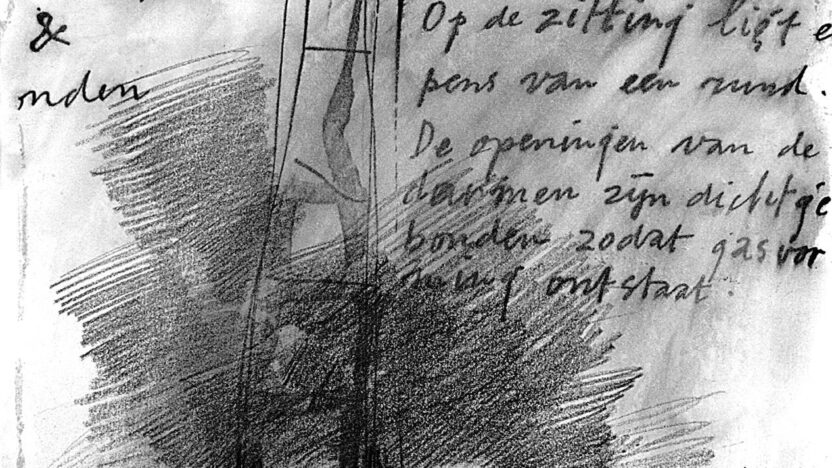 &
nden
Op de zitting ligt e
pens van een rund.
De openingen van de
darmen zijn dichtge
bonden zodat gasvor
ming ontstaat.